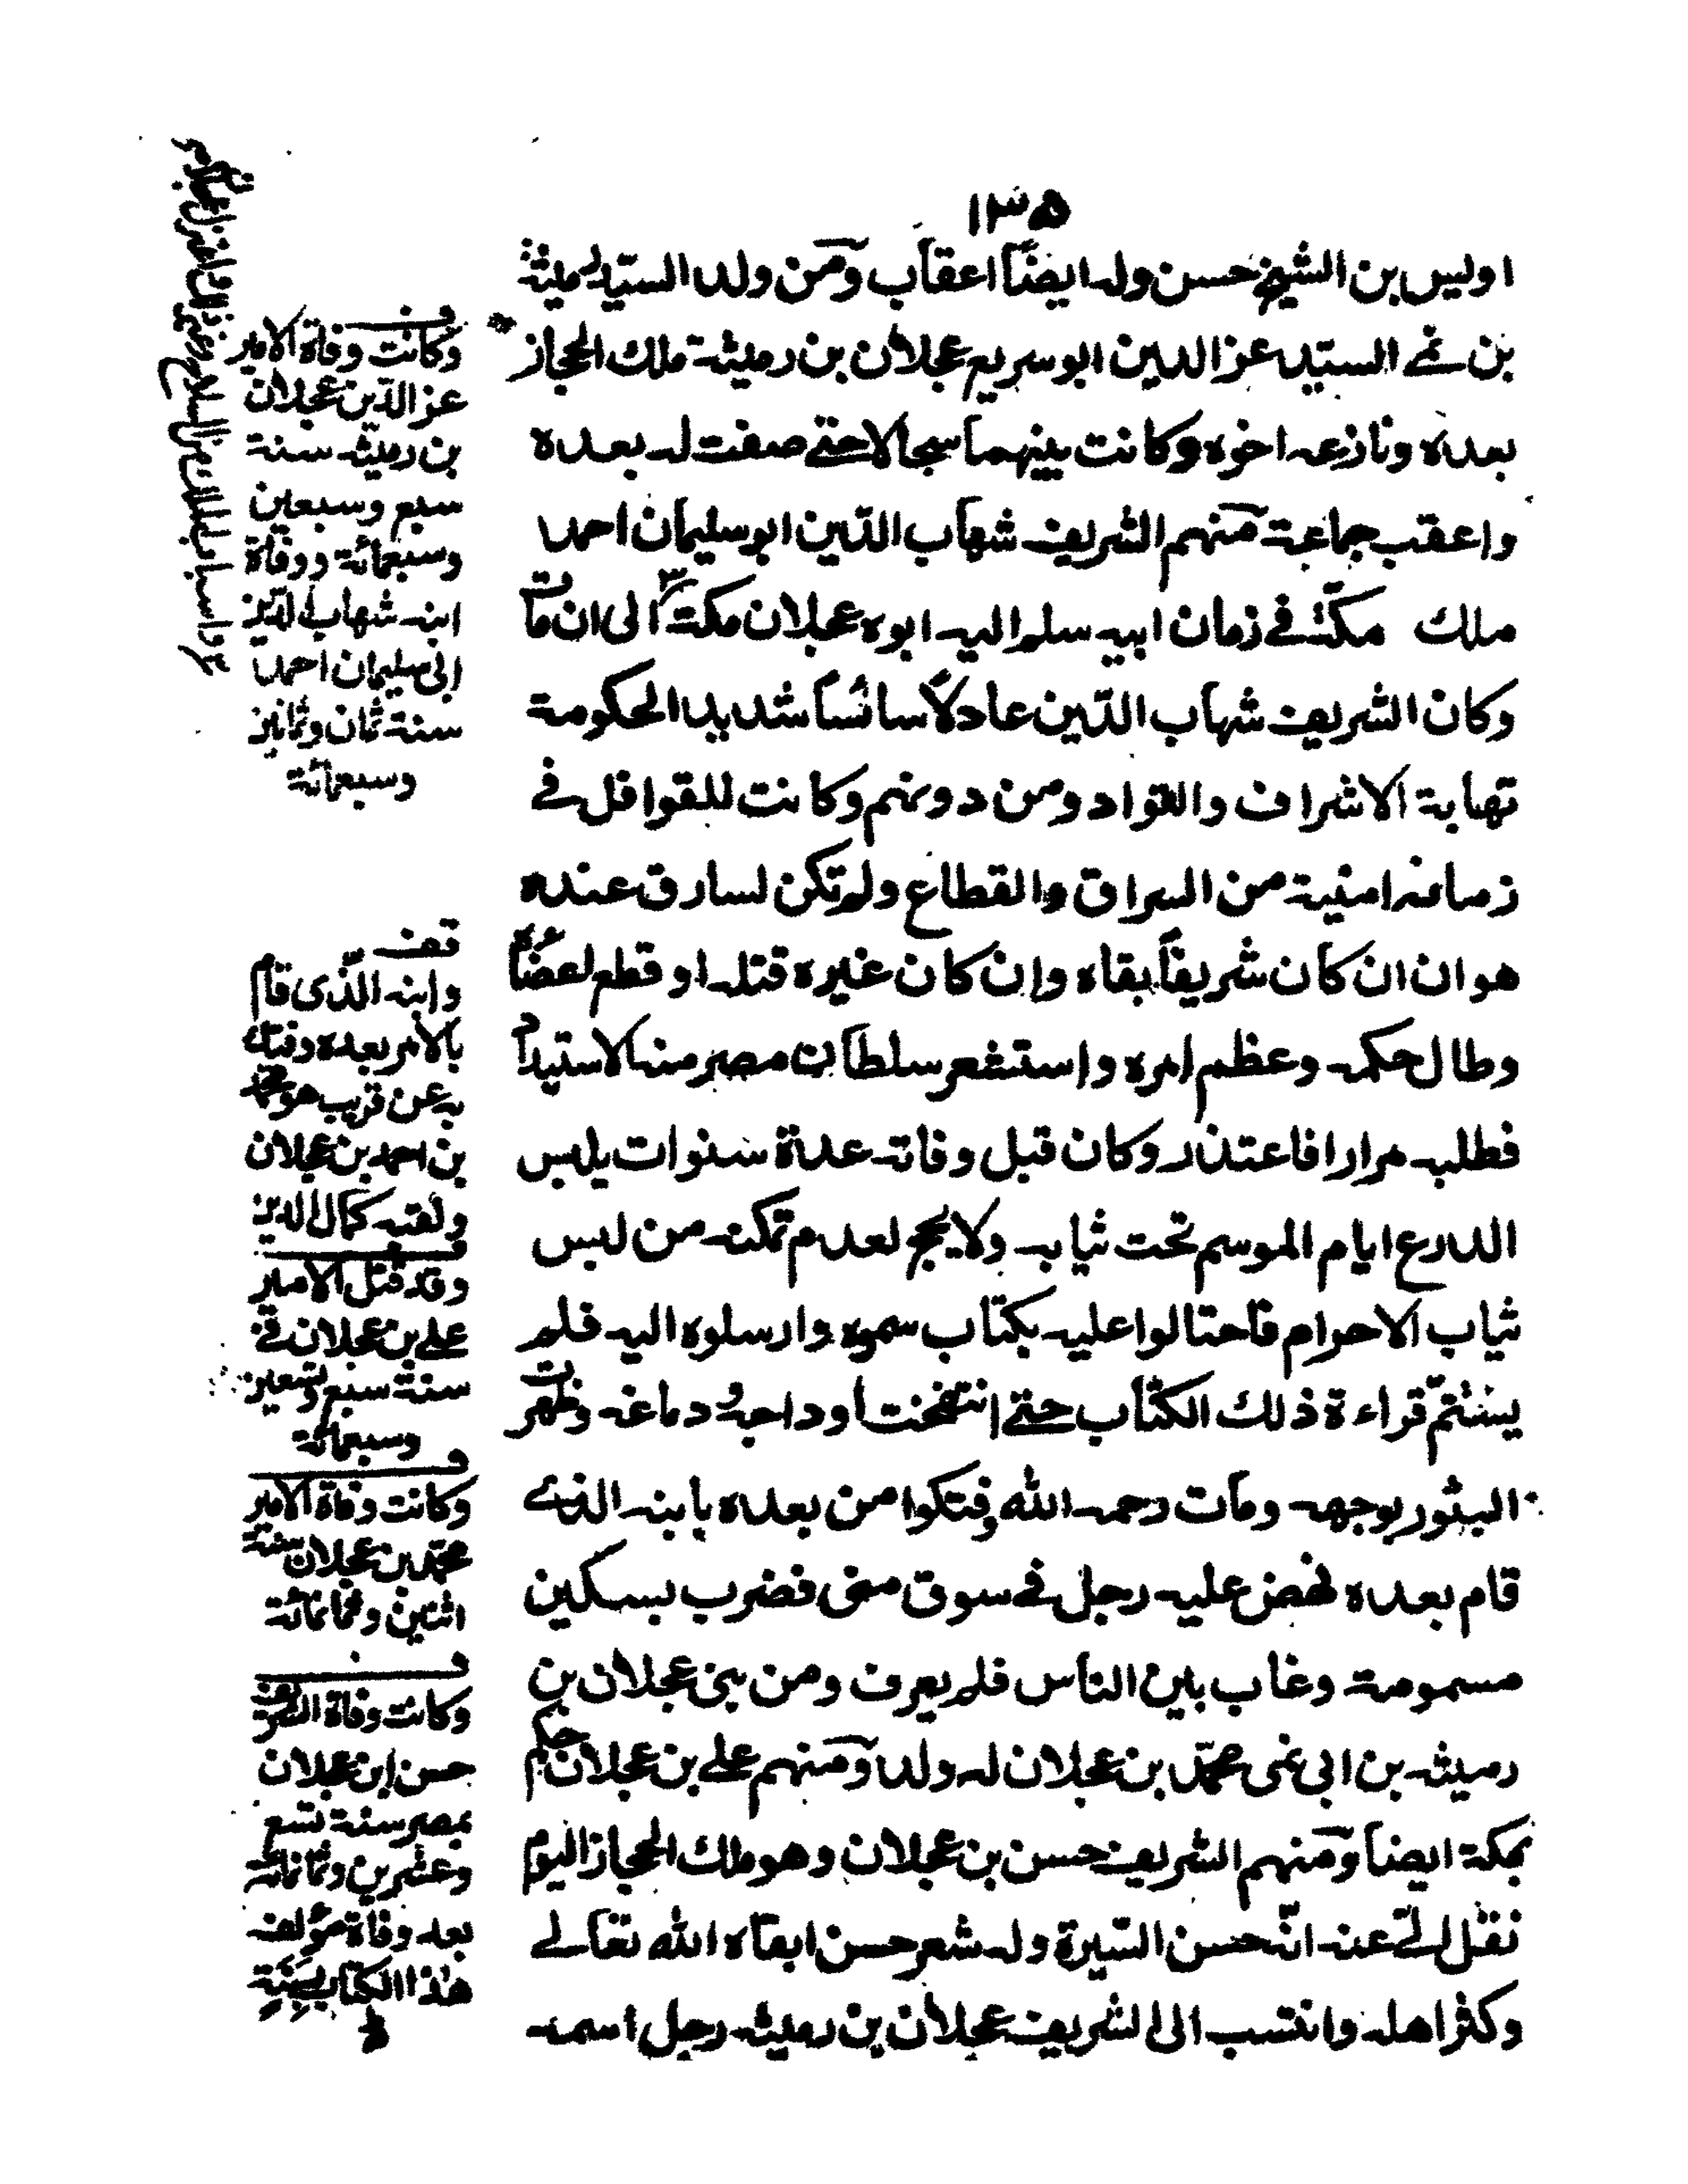 ١٣٥
اوليس بن الشيخ حسن وله ايضاً اعقاب ومن ولد السيد رميثة
بن نمي السيد عز الدين ابو سريع عجلان بن رميثة ملك الحجاز
بعده ونازعه اخوه وكانت بينهما سجالا حتى صفت له بعده
واعقب جماعة منهم الشريف شهاب الدين ابو سليمان احمد
ملك مكة في زمان ابيه سلم اليه ابوه عجلان مكة الى ان مات
وكان الشريف شهاب الدين عادلاً سائساً شديد الحكومة
تهابة الاشراف والقواد ومن دونهم وكانت للقوافل في
زمانه امنية من السراق والقطاع ولم تكن لسارق عنده
هوان ان كان شريفاً بقاه وان كان غيره قتله او قطع اعضاءه
وطال حكمه وعظم امره واستشعر سلطان مصر منه الاستيدام
فطلبه مرارا فاعتذر وكان قبل وفاته عدة سنوات يلبس
الدرع ايام الموسم تحت ثيابه ولا يحج لعدم تمكنه من لبس
ثياب الاحرام فاحتالوا عليه بكتاب سموه وارسلوه اليه فلم
يستتم قراءة ذلك الكتاب حتى انتفخت اوداجه ودماغه وظهرت
البثور بوجهه ومات رحمه الله وفتكوا من بعده بابنه الذي
قام بعده نهض عليه رجل في سوق منى فضرب بسكين
مسمومة وغاب بين الناس فلم يعرف ومن بني عجلان بن
رميثه بن ابي نمى محمد بن عجلان له ولد ومنهم علي بن عجلان حكم
بمكة ايضاً ومنهم الشريف حسن بن عجلان وهو ملك الحجاز اليوم
نقل لي عنه انه حسن السيرة وله شعر حسن ابقاه الله تعالى
وكثر اهله وانتسب الى الشريف عجلان بن رميثه رجل اسمه
وكانت وفاة الامير
عز الدين عجلان
بن رميثه سنة
سبع وسبعين
وسبعمائة ووفاة
ابنه شهاب الدين
ابي سليمان احمد
سنة ثمان وثمانين
وسبعمائة
قف
وابنه الذى قام
بالامر بعده وفتك
به عن قريب هو محمد
بن احمد بن عجلان
ولقبه كمال الدين
وقد قتل الامير
علي بن عجلان في
سنة سبع وتسعين
وسبعمائة
وكانت وفاة الامير
محمد بن عجلان سنة
اثنين وثمانمائة
وكانت وفاة الشريف
حسن ابن عجلان
بمصر سنة تسع
وعشرين وثمانمائة
بعد وفاة مؤلف
هذا الكتاب بسنة